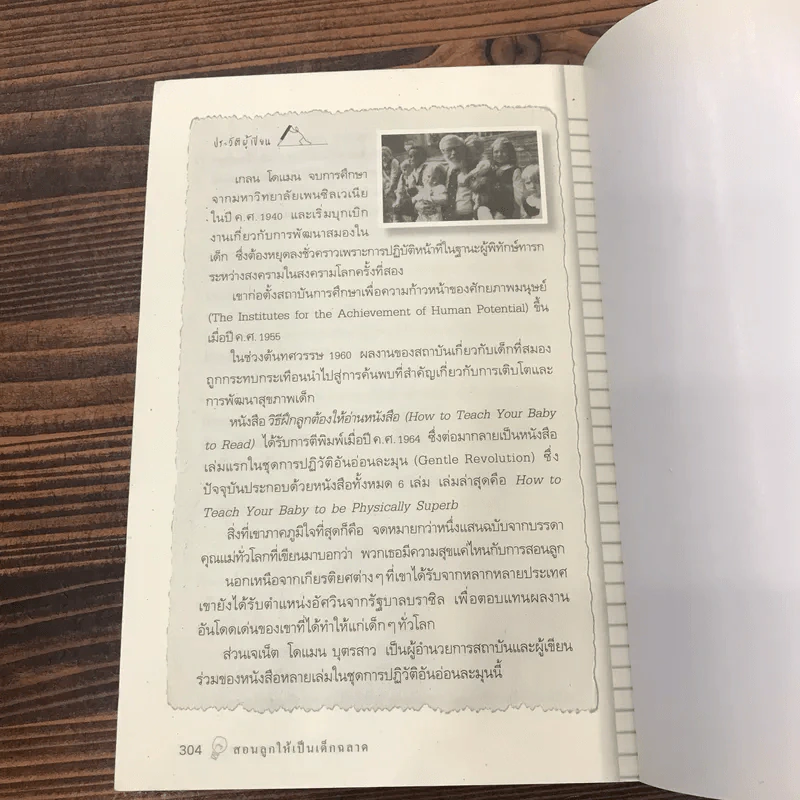 ประวัติผู้เขียน
เกลน โดแมน จบการศึกษา
จากมหาวิทยาลัยเพนซิลเวเนีย
ในปี ค.ศ. 1940 และเริ่มบุกเบิก
งานเกี่ยวกับการพัฒนาสมองใน
เด็ก ซึ่งต้องหยุดลงชั่วคราวเพราะการปฏิบัติหน้าที่ในฐานะผู้พิทักษ์ทารก
ระหว่างสงครามในสงครามโลกครั้งที่สอง
เขาก่อตั้งสถาบันการศึกษาเพื่อความก้าวหน้าของศักยภาพมนุษย์
(The Institutes for the Achievement of Human Potential) ขึ้น
เมื่อปี ค.ศ. 1955
ในช่วงต้นทศวรรษ 1960 ผลงานของสถาบันเกี่ยวกับเด็กที่สมอง
ถูกกระทบกระเทือนนำไปสู่การค้นพบที่สำคัญเกี่ยวกับการเติบโตและ
การพัฒนาสุขภาพเด็ก
หนังสือ วิธีฝึกลูกต้องให้อ่านหนังสือ (How to Teach Your Baby
to Read) ได้รับการตีพิมพ์เมื่อปี ค.ศ. 1964 ซึ่งต่อมากลายเป็นหนังสือ
เล่มแรกในชุดการปฏิวัติอันอ่อนละมุน (Gentle Revolution) ซึ่ง
ปัจจุบันประกอบด้วยหนังสือทั้งหมด 6 เล่ม เล่มล่าสุดคือ How to
Teach Your Baby to be Physically Superb
สิ่งที่เขาภาคภูมิใจที่สุดก็คือ จดหมายกว่าหนึ่งแสนฉบับจากบรรดา
คุณแม่ทั่วโลกที่เขียนมาบอกว่า พวกเธอมีความสุขแค่ไหนกับการสอนลูก
นอกเหนือจากเกียรติยศต่างๆ ที่เขาได้รับจากหลากหลายประเทศ
เขายังได้รับตำแหน่งอัศวินจากรัฐบาลบราซิล เพื่อตอบแทนผลงาน
อันโดดเด่นของเขาที่ได้ทำให้แก่เด็กๆ ทั่วโลก
ส่วนเจเน็ต โดแมน บุตรสาว เป็นผู้อำนวยการสถาบันและผู้เขียน
ร่วมของหนังสือหลายเล่มในชุดการปฏิวัติอันอ่อนละมุนนี้
304 สอนลูกให้เป็นเด็กฉลาด